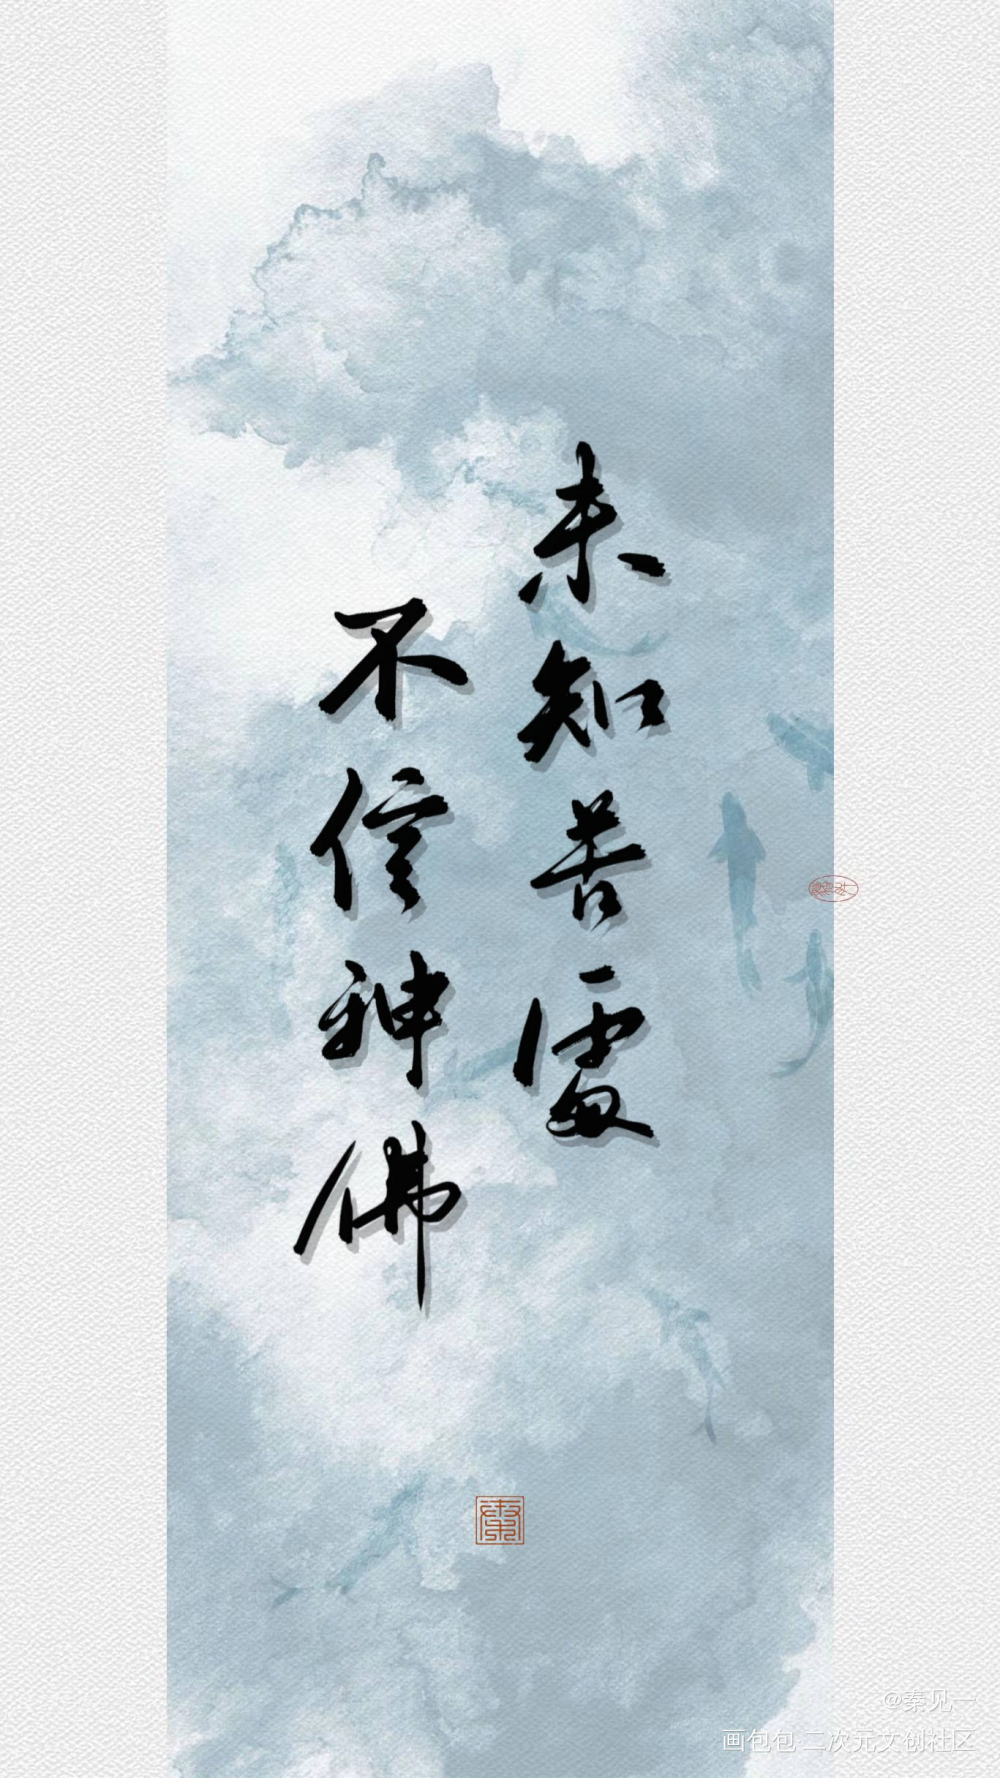 未知苦處
不信神佛
秦
@秦见一
画包包 二次元文创社区